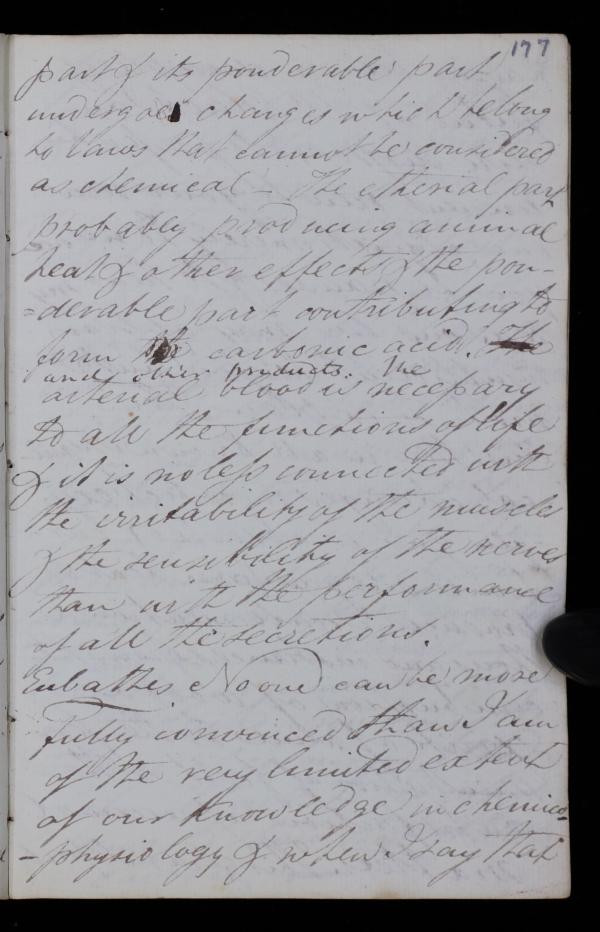 177
part & its ponderable part
undergoes changes which belong
to laws that cannot be considered
as chemical - The etherial part
probably producing animal
heat & other effects & the pon-
-derable part contributing to
form the carbonic acid. The
and other products. The
arterial blood is necessary
to all the functions of life
& it is no less connected with
the irritability of the muscles
& the sensibility of the nerves
than with the performance
of all the secretions.
Eubathes No one can be more
fully convinced than I am
of the very limited extent
of our knowledge in chemico-
-physiology & when I say that